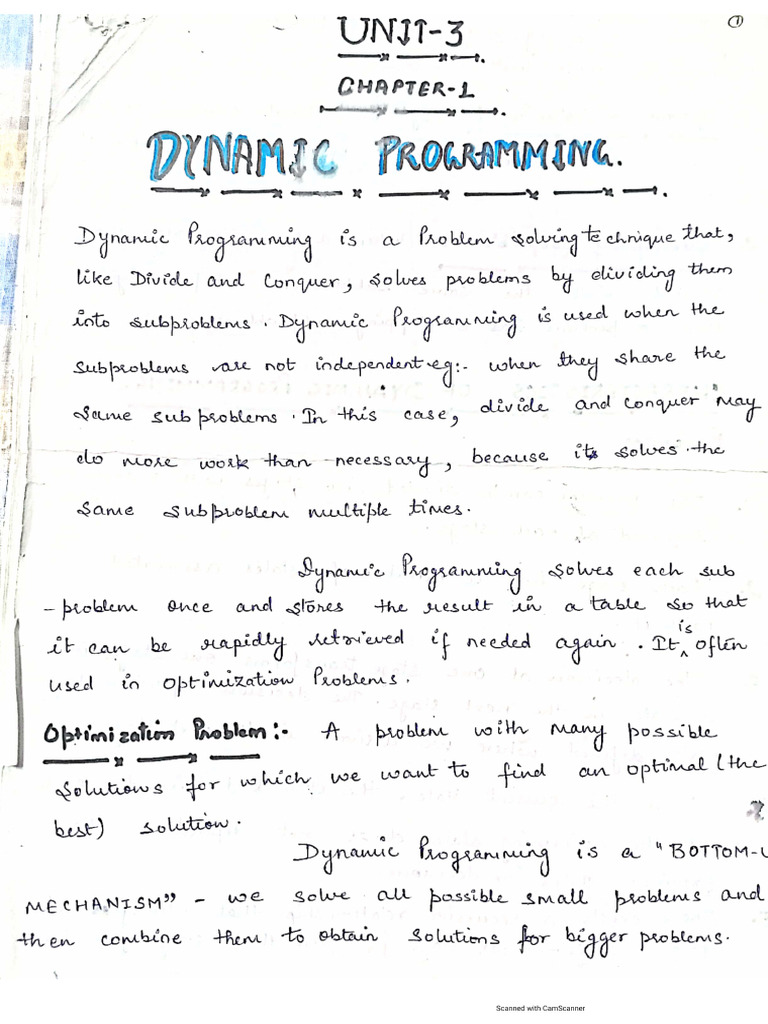 ①
UNIT-3
CHAPTER-1
DYNAMIC PROGRAMMING.
Dynamic Programming is a Problem solving technique that,
like Divide and Conquer, solves problems by dividing them
into subproblems. Dynamic Programming is used when the
subproblems are not independent eg:- when they share the
same subproblems. In this case, divide and conquer may
do more work than necessary, because its solves the
same subproblem multiple times.
Dynamic Programming solves each sub
-problem once and stores the result in a table so that
it can be rapidly retrieved if needed again. It is often
used in Optimization Problems.
Optimization Problem:- A problem with many possible
solutions for which we want to find an optimal (the
best) solution.
Dynamic Programming is a "BOTTOM-U
MECHANISM" - we solve all possible small problems and
then combine them to obtain solutions for bigger problems.
Scanned with CamScanner